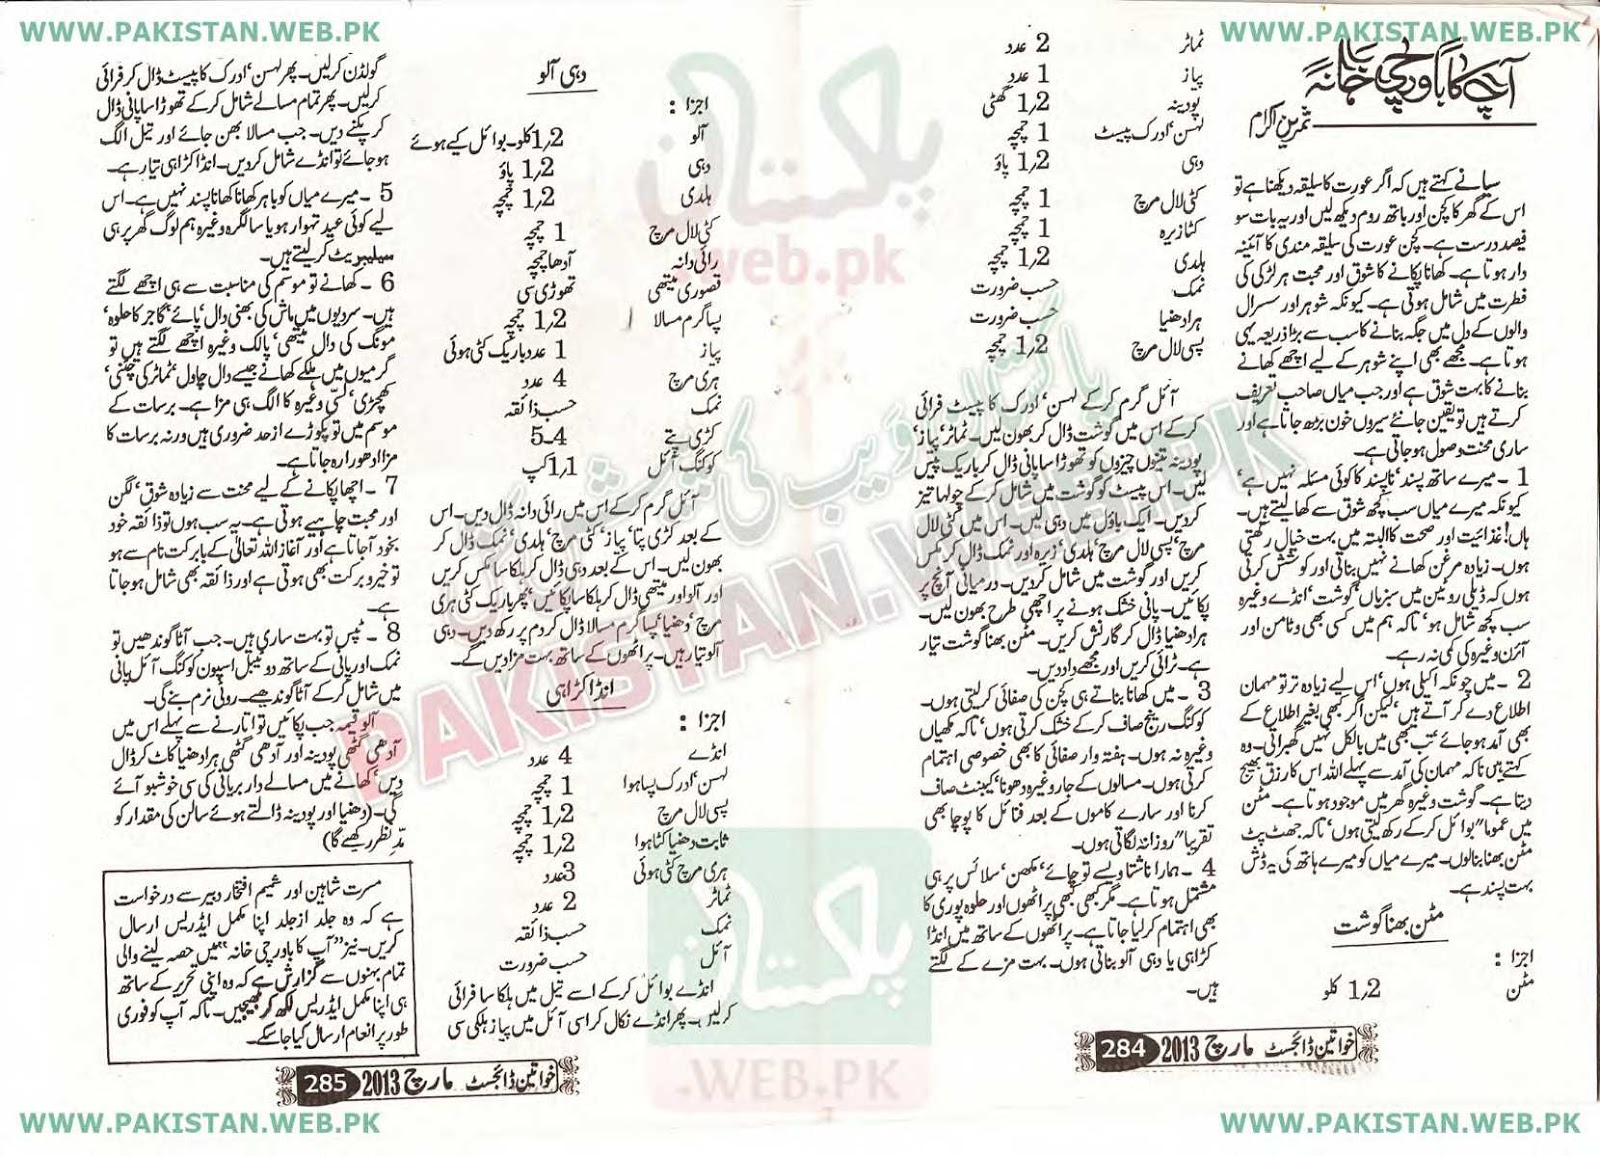 WWW.PAKISTAN.WEB.PK
WWW.PAKISTAN.WEB.PK
آپ کا باورچی خانہ
ثمرین اکرام
سیانے کہتے ہیں کہ اگر عورت کا سلیقہ دیکھنا ہے تو
اس کے گھر کا کچن اور باتھ روم دیکھ لیں اور یہ بات سو
فیصد درست ہے۔ کچن عورت کی سلیقہ مندی کا آئینہ
دار ہوتا ہے۔ کھانا پکانے کا شوق اور محبت ہر لڑکی کی
فطرت میں شامل ہوتی ہے۔ کیونکہ شوہر اور سسرال
والوں کے دل میں جگہ بنانے کا سب سے بڑا ذریعہ یہی
ہوتا ہے۔ مجھے بھی اپنے شوہر کے لیے اچھے کھانے
بنانے کا بہت شوق ہے اور جب میاں صاحب تعریف
کرتے ہیں تو یقین جانئے سیروں خون بڑھ جاتا ہے اور
ساری محنت وصول ہو جاتی ہے۔
1 - میرے ساتھ پسند' ناپسند کا کوئی مسئلہ نہیں ہے'
کیونکہ میرے میاں سب کچھ شوق سے کھا لیتے ہیں۔
ہاں! غذائیت اور صحت کا البتہ میں بہت خیال رکھتی
ہوں۔ زیادہ مرغن کھانے نہیں بناتی اور کوشش کرتی
ہوں کہ ڈیلی روٹین میں سبزیاں' گوشت' انڈے وغیرہ
سب کچھ شامل ہو' تاکہ ہم میں کسی بھی وٹامن اور
آئرن وغیرہ کی کمی نہ رہے۔
2 - میں چونکہ اکیلی ہوں' اس لیے زیادہ تر تو مہمان
اطلاع دے کر آتے ہیں' لیکن اگر کبھی بغیر اطلاع کے
بھی آمد ہو جائے' تب بھی میں بالکل نہیں گھبراتی۔ وہ
کہتے ہیں ناکہ مہمان کی آمد سے پہلے اللہ اس کا رزق بھیج
دیتا ہے۔ گوشت وغیرہ گھر میں موجود ہوتا ہے۔ مٹن
میں عموما" بوائل کرکے رکھ لیتی ہوں' تاکہ جھٹ پٹ
مٹن بھنا بنا لوں۔ میرے میاں کو میرے ہاتھ کی یہ ڈش
بہت پسند ہے۔
مٹن بھنا گوشت
اجزا :
مٹن 1٫2 کلو
ٹماٹر 2 عدد
پیاز 1 عدد
پودینہ 1٫2 گٹھی
لہسن' ادرک پیسٹ 1 چمچہ
دہی 1٫2 پاؤ
کٹی لال مرچ 1 چمچہ
کٹا زیرہ 1 چمچہ
ہلدی 1٫2 چمچہ
نمک حسب ضرورت
ہرا دھنیا حسب ضرورت
پسی لال مرچ 1٫2 چمچہ
آئل گرم کرکے لہسن' ادرک کا پیسٹ فرائی
کرکے اس میں گوشت ڈال کر بھون لیں۔ ٹماٹر' پیاز'
پودینہ تینوں چیزوں کو تھوڑا سا پانی ڈال کر باریک پیس
لیں۔ اس پیسٹ کو گوشت میں شامل کرکے چولہا تیز
کردیں۔ ایک باؤل میں دہی لیں۔ اس میں کٹی لال
مرچ' پسی لال مرچ' ہلدی' زیرہ اور نمک ڈال کر مکس
کریں اور گوشت میں شامل کردیں۔ درمیانی آنچ پر
پکائیں۔ پانی خشک ہونے پر اچھی طرح بھون لیں۔
ہرا دھنیا ڈال کر گارنش کریں۔ مٹن بھنا گوشت تیار
ہے۔ ٹرائی کریں اور مجھے داد دیں۔
3 - میں کھانا بناتے ہی کچن کی صفائی کرلیتی ہوں۔
کوکنگ رینج صاف کرکے خشک کرتی ہوں' تاکہ مکھیاں
وغیرہ نہ ہوں۔ ہفتہ وار صفائی کا بھی خصوصی اہتمام
کرتی ہوں۔ مسالوں کے جار وغیرہ دھونا' کیبنٹ صاف
کرنا اور سارے کاموں کے بعد فنائل کا پوچا بھی
تقریبا" روزانہ لگاتی ہوں۔
4 - ہمارا ناشتا ویسے تو چائے' مکھن' سلائس پر ہی
مشتمل ہوتا ہے۔ مگر کبھی کبھی پراٹھوں اور حلوہ پوری کا
بھی اہتمام کرلیا جاتا ہے۔ پراٹھوں کے ساتھ میں انڈا
کڑاہی یا دہی آلو بناتی ہوں۔ بہت مزے کے لگتے
ہیں۔
خواتین ڈائجسٹ مارچ 2013 284
دہی آلو
اجزا :
آلو 1٫2 کلو۔ بوائل کیے ہوئے
دہی 1٫2 پاؤ
ہلدی 1٫2 چمچہ
کٹی لال مرچ 1 چمچہ
رائی دانہ آدھا چمچہ
قصوری میتھی تھوڑی سی
پسا گرم مسالا 1٫2 چمچہ
پیاز 1 عدد باریک کٹی ہوئی
ہری مرچ 4 عدد
نمک حسب ذائقہ
کڑی پتے 4-5
کوکنگ آئل 1٫1 کپ
آئل گرم کرکے اس میں رائی دانہ ڈال دیں۔ اس
کے بعد کڑی پتا' پیاز' کٹی مرچ' ہلدی' نمک ڈال کر
بھون لیں۔ اس کے بعد دہی ڈال کر ہلکا سا مکس کریں
اور آلو اور میتھی ڈال کر ہلکا سا پکائیں' پھر باریک کٹی ہری
مرچ' دھنیا' پسا گرم مسالا ڈال کر دم پر رکھ دیں۔ دہی
آلو تیار ہیں۔ پراٹھوں کے ساتھ بہت مزا دیں گے۔
انڈا کڑاہی
اجزا :
انڈے 4 عدد
لہسن' ادرک پسا ہوا 1 چمچہ
پسی لال مرچ 1٫2 چمچہ
ثابت دھنیا کٹا ہوا 1٫2 چمچہ
ہری مرچ کٹی ہوئی 3 عدد
ٹماٹر 2 عدد
نمک حسب ذائقہ
آئل حسب ضرورت
انڈے بوائل کرکے اسے تیل میں ہلکا سا فرائی
کرلیں۔ پھر انڈے نکال کر اسی آئل میں پیاز ہلکی سی
گولڈن کرلیں۔ پھر لہسن' ادرک کا پیسٹ ڈال کر فرائی
کرلیں۔ پھر تمام مسالے شامل کرکے تھوڑا سا پانی ڈال
کر پکنے دیں۔ جب مسالا بھن جائے اور تیل الگ
ہو جائے تو انڈے شامل کردیں۔ انڈا کڑاہی تیار ہے۔
5 - میرے میاں کو باہر کھانا کھانا پسند نہیں ہے۔ اس
لیے کوئی عید تہوار ہو یا سالگرہ وغیرہ ہم لوگ گھر پر ہی
سیلیبریٹ کرلیتے ہیں۔
6 - کھانے تو موسم کی مناسبت سے ہی اچھے لگتے
ہیں۔ سردیوں میں ماش کی بھنی دال' پائے' گاجر کا حلوہ'
مونگ کی دال میتھی' پالک وغیرہ اچھے لگتے ہیں تو
گرمیوں میں ہلکے کھانے جیسے دال چاول' ٹماٹر کی چٹنی'
کھچڑی' لسی وغیرہ کا الگ ہی مزا ہے۔ برسات کے
موسم میں تو پکوڑے از حد ضروری ہیں ورنہ برسات کا
مزا ادھورا رہ جاتا ہے۔
7 - اچھا پکانے کے لیے محنت سے زیادہ شوق' لگن
اور محبت چاہیے ہوتی ہے۔ یہ سب ہوں تو ذائقہ خود
بخود آجاتا ہے اور آغاز اللہ تعالیٰ کے بابرکت نام سے ہو
تو خیر و برکت بھی ہوتی ہے اور ذائقہ بھی شامل ہو جاتا
ہے۔
8 - ٹپس تو بہت ساری ہیں۔ جب آٹا گوندھیں تو
نمک اور پانی کے ساتھ دو ٹیبل اسپون کوکنگ آئل پانی
میں شامل کرکے آٹا گوندھیے۔ روٹی نرم بنے گی۔
آلو قیمہ جب پکائیں تو اتارنے سے پہلے اس میں
آدھی گٹھی پودینہ اور آدھی گٹھی ہرا دھنیا کاٹ کر ڈال
دیں' کھانے میں مسالے دار بریانی کی سی خوشبو آئے
گی۔ (دھنیا اور پودینہ ڈالتے ہوئے سالن کی مقدار کو
مدِّنظر رکھیے گا)
مسرت شاہین اور شمیم افتخار دبیر سے درخواست
ہے کہ وہ جلد از جلد اپنا مکمل ایڈریس ارسال
کریں۔ نیز "آپ کا باورچی خانہ" میں حصہ لینے والی
تمام بہنوں سے گزارش ہے کہ وہ اپنی تحریر کے ساتھ
ہی اپنا مکمل ایڈریس لکھ کر بھیجیں۔ تاکہ آپ کو فوری
طور پر انعام ارسال کیا جا سکے۔
خواتین ڈائجسٹ مارچ 2013 285
پاکستان
.web.pk
پاکستان ویب کی پیشکش
PAKISTAN.WEB.PK
پاکستان
.WEB.PK
WWW.PAKISTAN.WEB.PK
WWW.PAKISTAN.WEB.PK